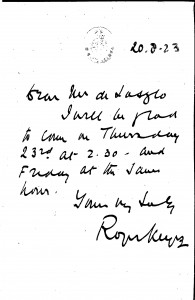 20.8.23
Dear Mr de Laszlo
I will be glad
to come on Thursday
23rd at 2.30 - and
Friday at the same
hour.
Yours
Roger Keyes